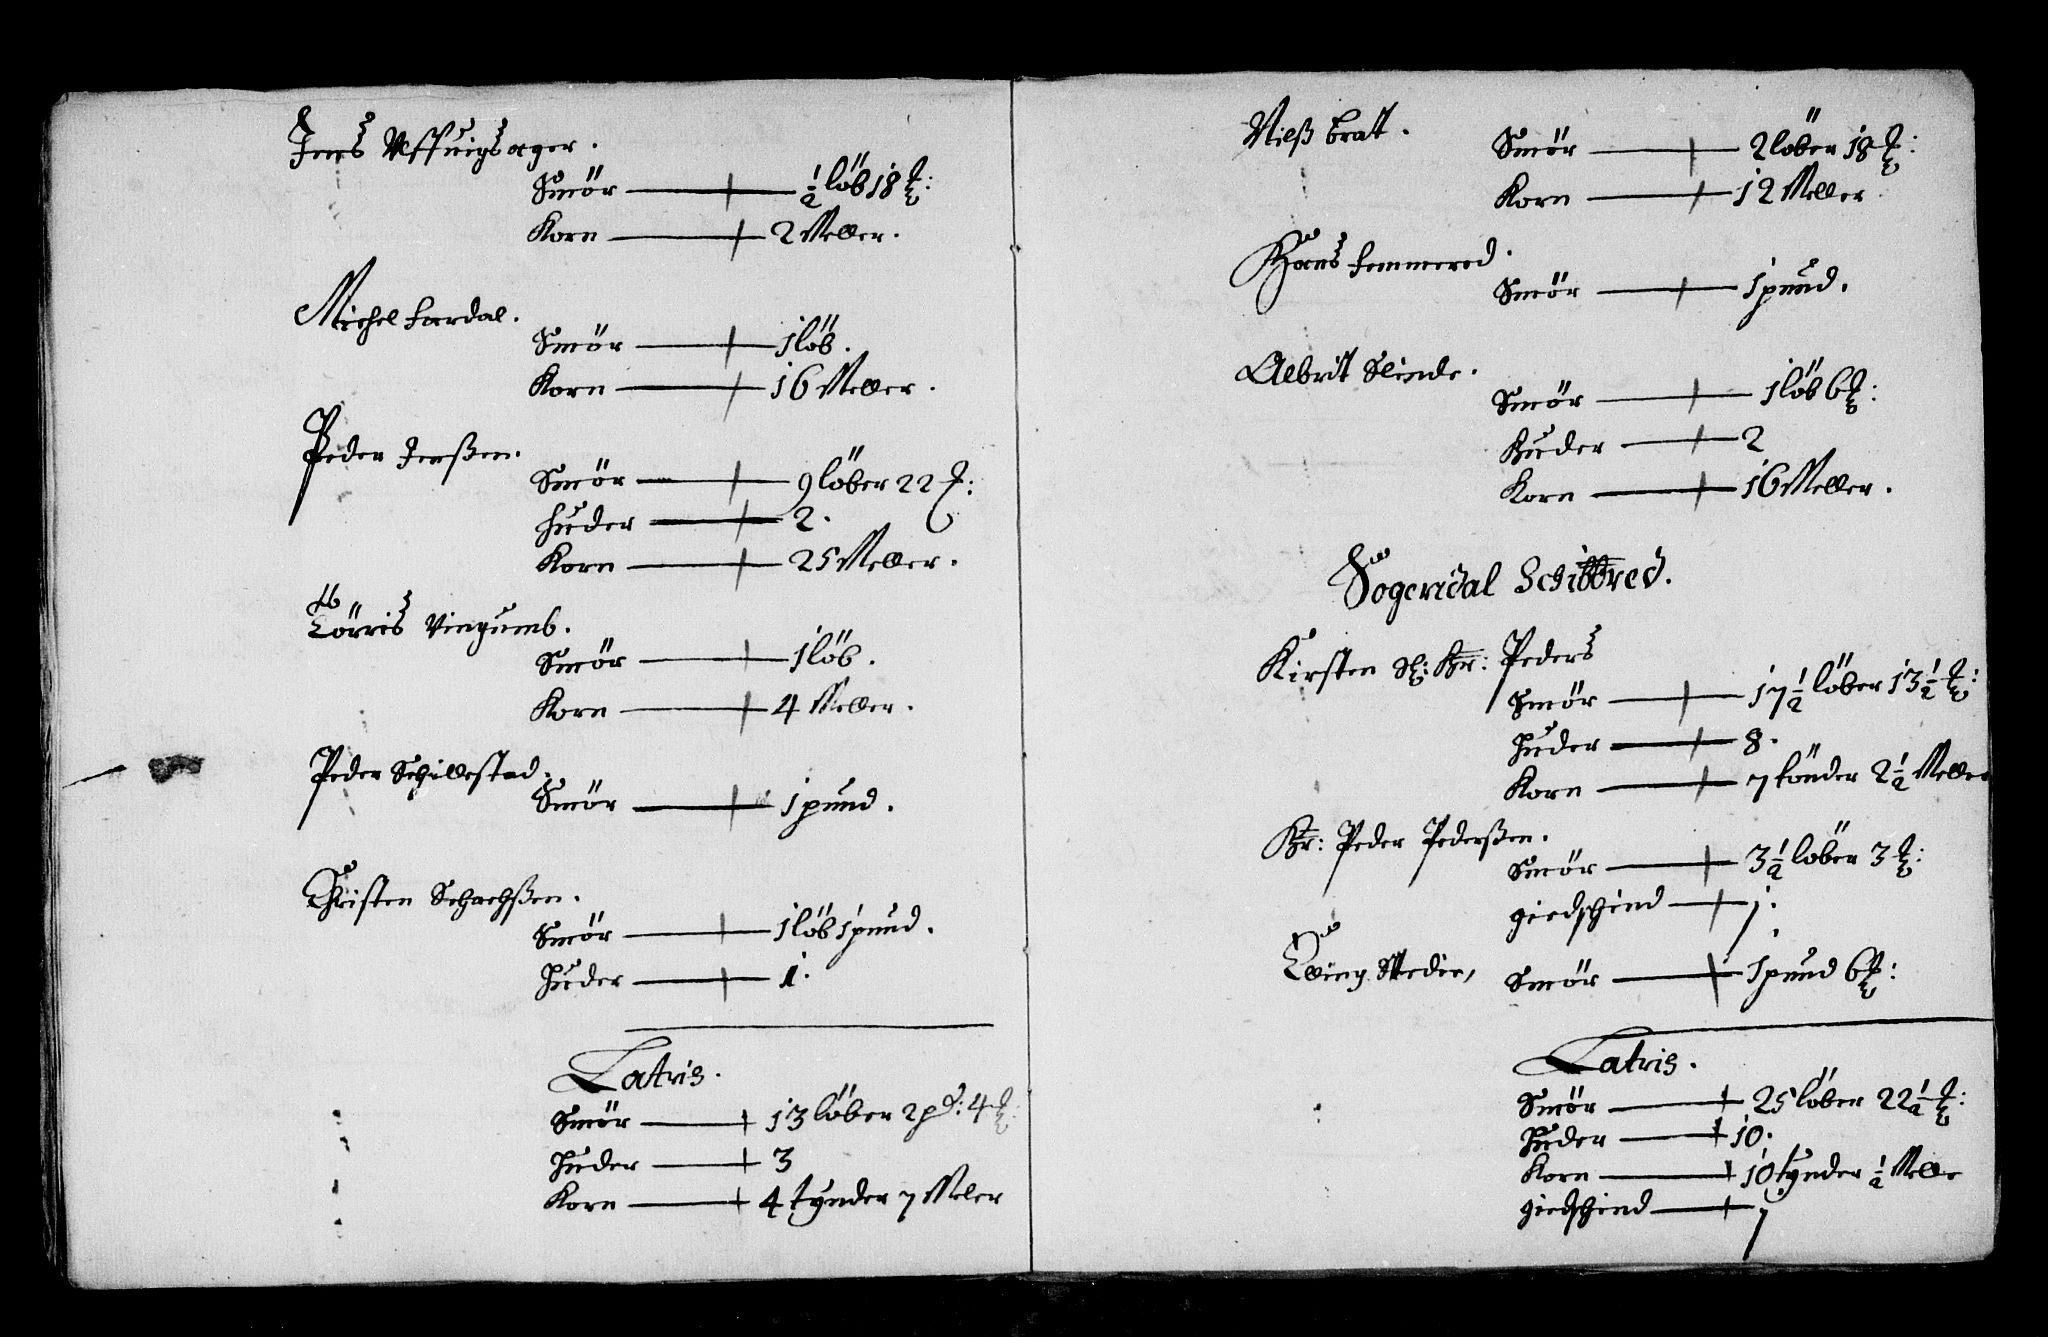 Jens
Smör — ½ löb 18 ℔:
Korn — 2 Meller.
Michel Lardal.
Smör — 1 löb.
Korn — 16 Meller.
Peder Jenßen.
Smör — 9 löber 22 ℔:
Huder — 2.
Korn — 25 Meller.
Törris Vingumb.
Smör — 1 löb.
Korn — 4 Meller.
Peder Schillestad.
Smör — 1 pund.
Christen Schachßen.
Smör — 1 löb 1 pund.
Huder — 1.
Latris.
Smör — 13 löber 2 pd: 4 ℔:
Huder — 3
Korn — 4 tynder 7 Meler
Nielß bratt.
Smör — 2 löber 18 ℔:
Korn — 12 Meller
Hans Femmered.
Smör — 1 pund.
Albrit Slinde.
Smör — 1 löb 6 ℔:
Huder — 2
Korn — 16 Meller.
Sogendal Schibbred.
Kirsten Sl: Hr: Peders
Smör — 17½ löber 13½ ℔:
Huder — 8.
Korn — 7 tönder 2½ Meller
Hr: Peder Pederßen.
Smör — 3½ löber 3 ℔:
giedschind — 1.
Elling Stedie,
Smör — 1 pund 6 ℔:
Latris.
Smör — 25 löber 22½ ℔:
Huder — 10.
Korn — 10 tynder ½ Melle
giedschind — 1